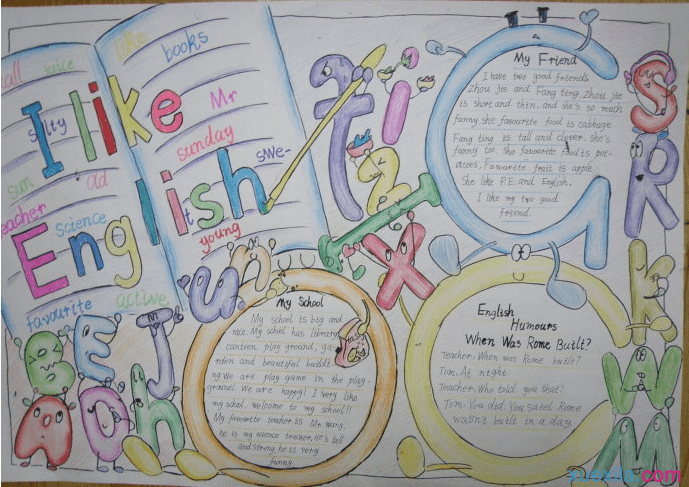 tall nice
like books
I like
salty
Mr
sunday
sun
old
swe-
teacher
science
It
English
young
favourite active
My Friend
I have two good friends
Zhou jie and Fang ting Zhou jie
is short and thin. and she's so much
funny she favourite food is cabbage
Fang ting is tall and clever. she's
funny too. She favourite food is pot-
atoes, Favourite fruit is apple
She like P.E. and English.
I like my two good
friend.
My School
My school is big and
nice. My school has library
canteen play ground, ga-
rden and beautiful buildi
ng We are play game in the play-
ground We are happy! I very like
my school. welcome to my school!!
My favourite teacher is Mr Wang,
he is my science teacher. He's tall
and strong, he is very
funny.
English
Humours
When Was Rome Built?
Teacher: When was Rome built?
Tom: At night.
Teacher: Who told you that?
Tom: You did. You saied Rome
wasn't built in a day.
B E J
A O h
u n
t i
z
T
x
G
S
R
k
W
M
.com